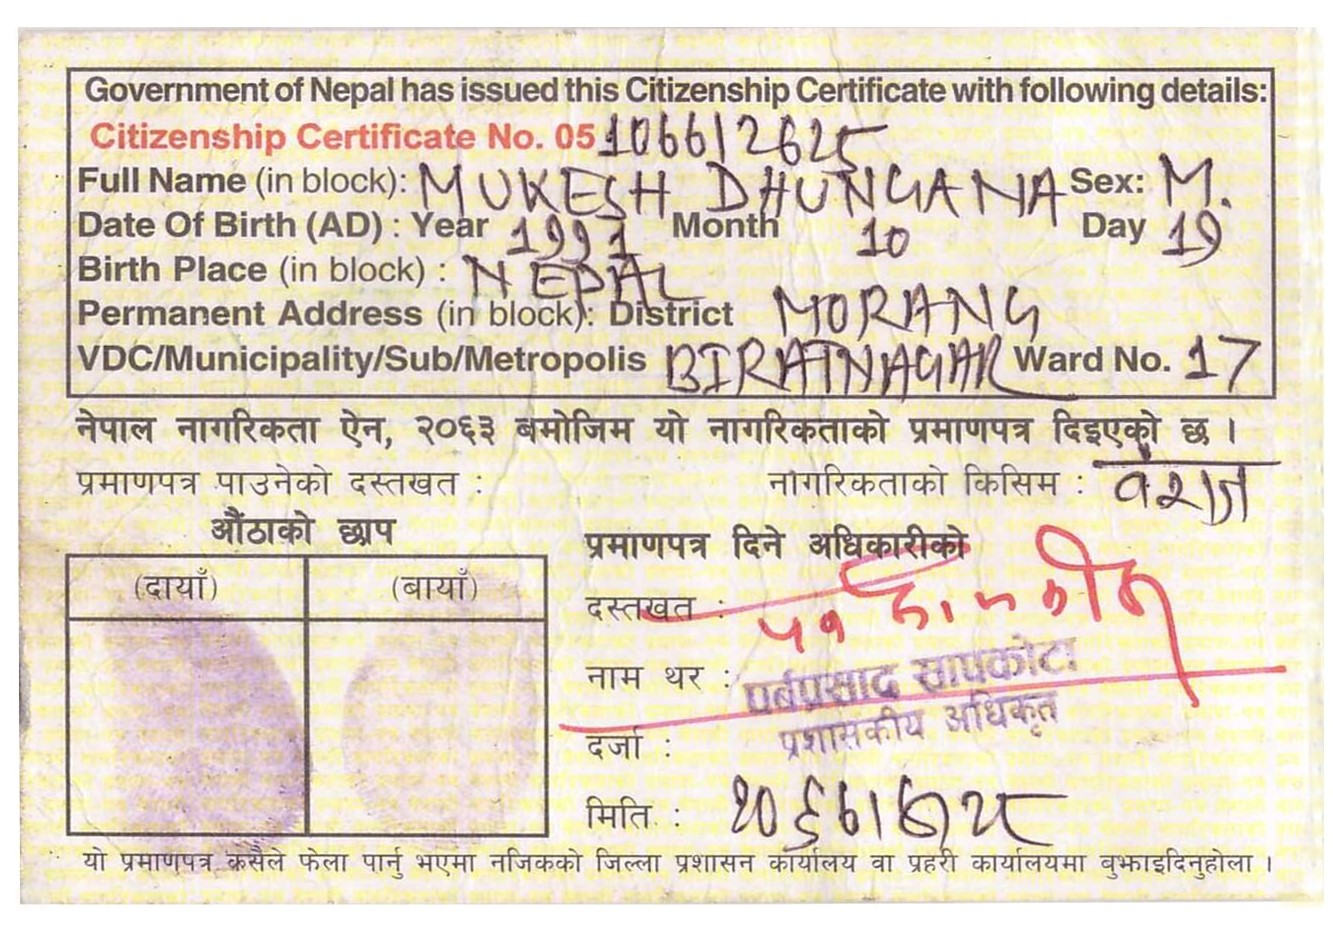 Government of Nepal has issued this Citizenship Certificate with following details:
Citizenship Certificate No. 05 1066/2625
Full Name (in block): MUKESH DHUNGANA Sex: M.
Date Of Birth (AD) : Year 1991 Month 10 Day 19
Birth Place (in block) : NEPAL
Permanent Address (in block): District MORANG
VDC/Municipality/Sub/Metropolis BIRATNAGAR Ward No. 17
नेपाल नागरिकता ऐन, २०६३ बमोजिम यो नागरिकताको प्रमाणपत्र दिइएको छ ।
प्रमाणपत्र पाउनेको दस्तखत : नागरिकताको किसिम : वंशज
औंठाको छाप
(दायाँ) (बायाँ)
प्रमाणपत्र दिने अधिकारीको
दस्तखत :
नाम थर : पर्वप्रसाद सापकोटा
प्रशासकीय अधिकृत
दर्जा :
मिति :
यो प्रमाणपत्र कसैले फेला पार्नु भएमा नजिकको जिल्ला प्रशासन कार्यालय वा प्रहरी कार्यालयमा बुझाइदिनुहोला ।